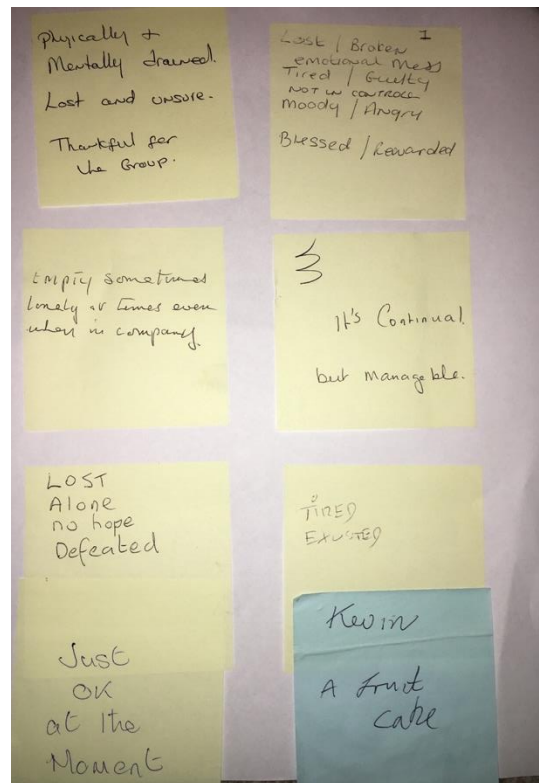 Phyically +
Mentally drained.
Lost and unsure.
Thankful for
the Group.
1
Lost / Broken
emotional mess
Tired / Guilty
NOT IN CONTROLL
Moody / Angry
Blessed / Rewarded
Empty sometimes
lonely at times even
when in company.
It's Continual
but Manageble.
LOST
Alone
no hope
Defeated
TIRED
EXUSTED
Just
OK
at the
Moment
Kevin
A fruit
cake